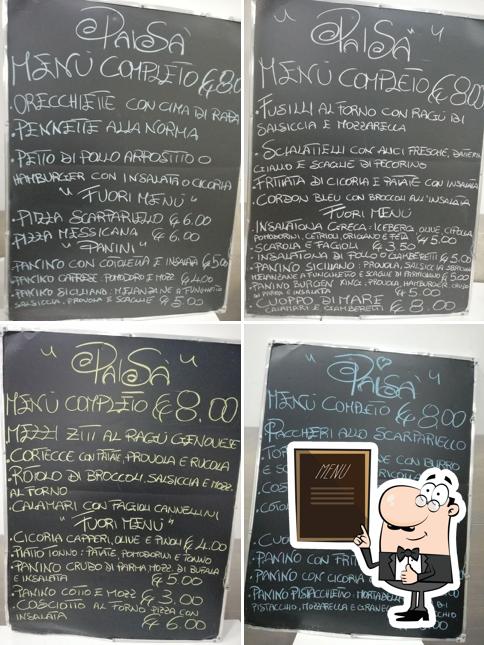 " PAISÀ "
MENÙ COMPLETO € 8,00
• ORECCHIETTE CON CIMA DI RAPA
• PENNETTE ALLA NORMA
• PETTO DI POLLO ARROSTITO O
HAMBURGER CON INSALATA O CICORIA
" FUORI MENÙ "
• PIZZA SCARPARIELLO € 6.00
PIZZA MESSICANA € 6.00
" PANINI "
• PANINO CON COTOLETTA E INSALATA € 5.00
• PANINO CAPRESE POMODORO E MOZZ. € 4.00
• PANINO SICILIANO: MELANZANE A FUNGHETTO
SALSICCIA, PROVOLA E SCAGLIE € 5.00
" PAISÀ "
MENÙ COMPLETO € 8,00
• FUSILLI AL FORNO CON RAGÙ DI
SALSICCIA E MOZZARELLA
• SCIALATIELLI CON ALICI FRESCHE, DATTERINO
GIALLO E SCAGLIE DI PECORINO
• FRITTATA DI CICORIA E PATATE CON INSALATA
• CORDON BLEU CON BROCCOLI ALL'INSALATA
FUORI MENÙ
• INSALATONA GRECA: ICEBERG, OLIVE, CIPOLLA
POMODORINI, CETRIOLI, ORIGANO E FETA € 5.00
• SCAROLA E FAGIOLI € 3.50
• INSALATONA DI POLLO O GAMBERETTI € 5.00
• PANINO SICILIANO: PROVOLA, SALSICCIA
MELANZANE A FUNGHETTO E SCAGLIE DI € 5.00
• PANINO BURGER KING: PROVOLA, HAMBURGER, CRUDO
DI PARMA E INSALATA € 5.00
• CUOPPO DI MARE
CALAMARI E GAMBERETTI € 8.00
" PAISÀ "
MENÙ COMPLETO € 8,00
MEZZI ZITI AL RAGÙ GENOVESE
• CORTECCE CON PATATE, PROVOLA E RUCOLA
• ROTOLO DI BROCCOLI, SALSICCIA E MOZZ.
AL FORNO
• CALAMARI CON FAGIOLI CANNELLINI
" FUORI MENÙ "
• CICORIA CAPPERI, OLIVE E PINOLI € 4.00
• PIATTO TONNO: PATATE, POMODORINI E TONNO
• PANINO CRUDO DI PARMA MOZZ. DI BUFALA
E INSALATA € 5.00
• PANINO COTTO E MOZZ € 3.00
• COSCIOTTO AL FORNO PIZZA CON
INSALATA € 6.00
" PAISÀ "
MENÙ COMPLETO € 8,00
• PACCHERI ALLO SCARPARIELLO
NE CON BURRO
E
• PANINO CON
• PANINO CON CICORIA
• PANINO PISTACCHIETTO: MORTADELLA DI
PISTACCHIO, MOZZARELLA E
MENU